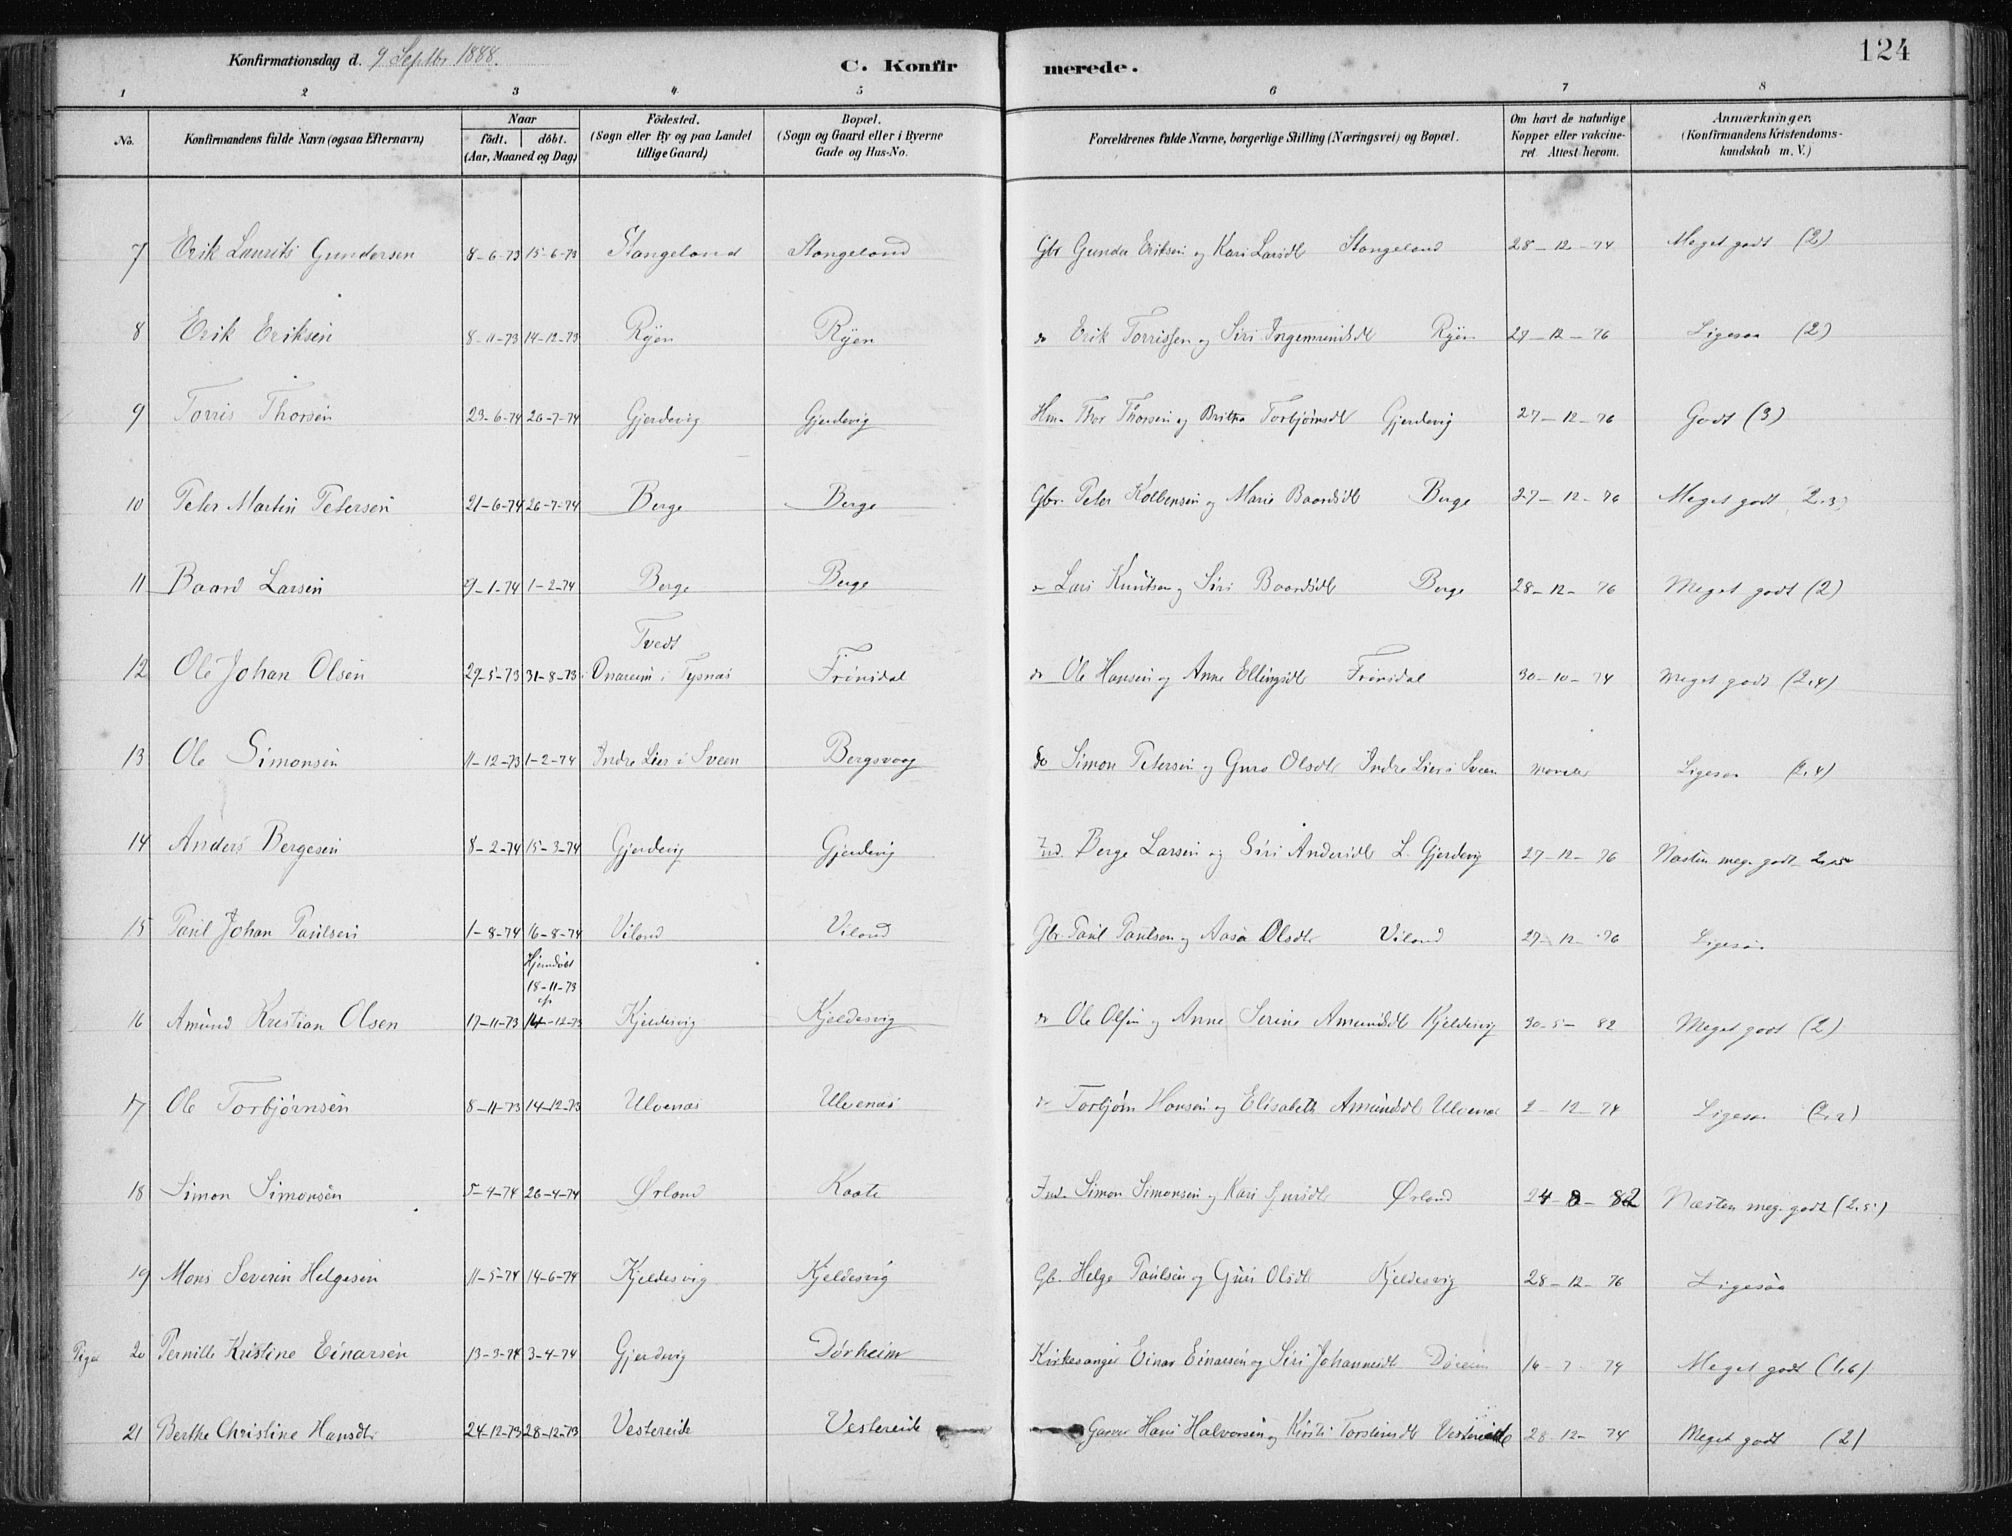 124
Konfirmationsdag d. 9 Septbr 1888.
C. Konfirmerede.
1 2 3 4 5 6 7 8
No. Konfirmandens fulde Navn (ogsaa Efternavn) Naar født. døbt. (Aar, Maaned og Dag) Födested. (Sogn eller By og paa Landet tillige Gaard) Bopæl. (Sogn og Gaard eller i Byerne Gade og Hus-No. Forældrenes fulde Navne, borgerlige Stilling (Næringsvei) og Bopæl. Om havt de naturlige Kopper eller vakcineret. Attest herom. Anmærkninger. (Konfirmandens Kristendomskundskab m. V.)
7 Erik Laurits Gundersen 8-6-73 15-6-73 Stangeland Stangeland Gbr Gunder Eriksen og Kari Larsdt Stangeland 28-12-74 Meget godt (2)
8 Erik Eriksen 8-11-73 14-12-73 Ryen Ryen do Erik Torrissen og Siri Ingemundsdt Ryen 27-12-76 Ligesaa (2)
9 Torris Thorsen 23-6-74 26-7-74 Gjerdevig Gjerdevig Hm. Thor Thorsen og Britha Torbjørnsdt Gjerdevig 27-12-76 Godt (3)
10 Peter Martin Petersen 21-6-74 26-7-74 Berge Berge Gbr. Peter Kolbensen og Marie Baardsdt Berge 27-12-76 Meget godt 2.3)
11 Baard Larsen 9-1-74 1-2-74 Berge Berge do Lars Knutsen og Siri Baardsdt Berge 28-12-76 Meget godt (2)
Tvedt
12 Ole Johan Olsen 29-5-73 31-8-73 Onareim i Tysnæs Frönsdal do Ole Hansen og Anne Ellingsdt Frönsdal 30-10-74 Meget godt (2,4)
13 Ole Simonsen 11-12-73 1-2-74 Indre Lier i Sveen Bergsvaag do Simon Petersen og Guro Olsdt Indre Lier i Sveen Ligesaa (2,4)
14 Anders Bergesen 8-2-74 15-3-74 Gjerdevig Gjerdevig Ind. Berge Larsen og Siri Andersdt L. Gjerdevig 27-12-76 Næsten meg. godt 2,5
15 Paul Johan Paulsen 1-8-74 16-8-74 Viland Viland Gbr. Paul Paulsen og Aasa Olsdt Viland 27-12-76 Ligesaa
Hjemdøbt
18-11-73
16 Amund Kristian Olsen 17-11-73 14-12-73 Kjeldesvig Kjeldesvig do Ole Olsen og Anne Serine Amundsdt Kjeldesvig 30-5-82 Meget godt (2)
17 Ole Torbjørnsen 8-11-73 14-12-73 Ulvenæs Ulvenæs do Torbjørn Hansen og Elisabeth Amundsdt Ulvenæs 2-12-74 Ligesaa (2,2)
18 Simon Simonsen 5-4-74 26-4-74 Ørland Kaate Ind. Simon Simonsen og Kari Ørland 24-8-82 Næsten meg. godt (2,5)
19 Mons Severin Helgesen 11-5-74 14-6-74 Kjeldesvig Kjeldesvig Gb. Helge Paulsen og Guri Olsdt Kjeldesvig 28-12-76 Ligesaa
Piger 20 Pernille Kristine Einarsen 13-3-74 3-4-74 Gjerdevig Dörheim Kirkesanger Einar Einarsen og Siri Johannesdt Döreim 16-7-74 Meget godt (1,6)
21 Berthe Christine Hansdtr 24-12-73 28-12-73 Vestereide Vestereide Garver Hans Halvorsen og Kirsti Torsteinsdt Vestereide 28-12-74 Meget godt (2)